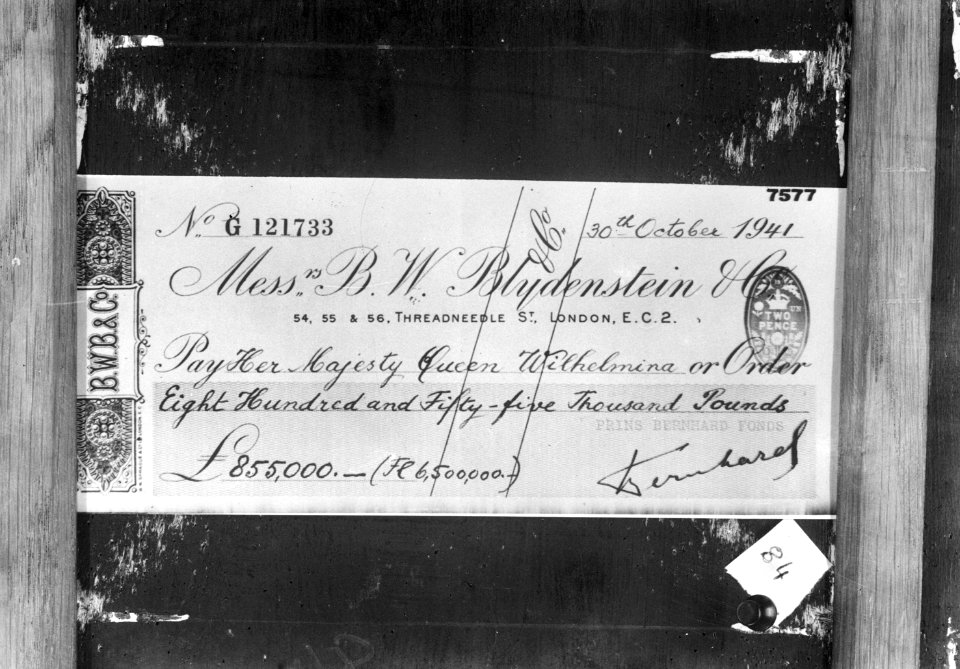 7577
No. G 121733
30th October 1941
& Co.
Messrs. B. W. Blydenstein & Co.
54, 55 & 56, THREADNEEDLE ST, LONDON, E.C.2.
TWO PENCE
B.W.B. & Co.
Pay Her Majesty Queen Wilhelmina or Order
Eight Hundred and Fifty-five Thousand Pounds
PRINS BERNHARD FONDS
£ 855,000.— (Fl 6,500,000.-)
Bernhard
84